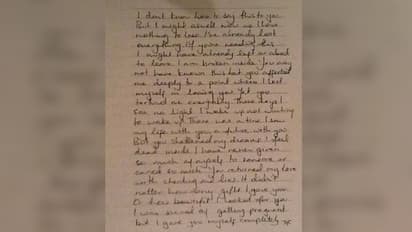 I don't know how to say this to you
But I might aswell now as I have
nothing to lose. I've already lost
everything. If your reading this
I might have already left or about
to leave. I am broken inside. You may
not have known this but you affected
me deeply to a point where I lost
myself in loving you. Yet you
tortured me everyday. These days I
see no light I wake up not wanting
to wake up. There was a time I saw
my life with you a future with you.
But you shattered my dreams. I feel
dead inside. I have never given
so much of myself to someone or
cared so much. You returned my love
with cheating and lies. It didn't
matter how many gifts I gave you
Or how beautiful I looked for you
I was scared of getting pregnant
but I gave you myself completely